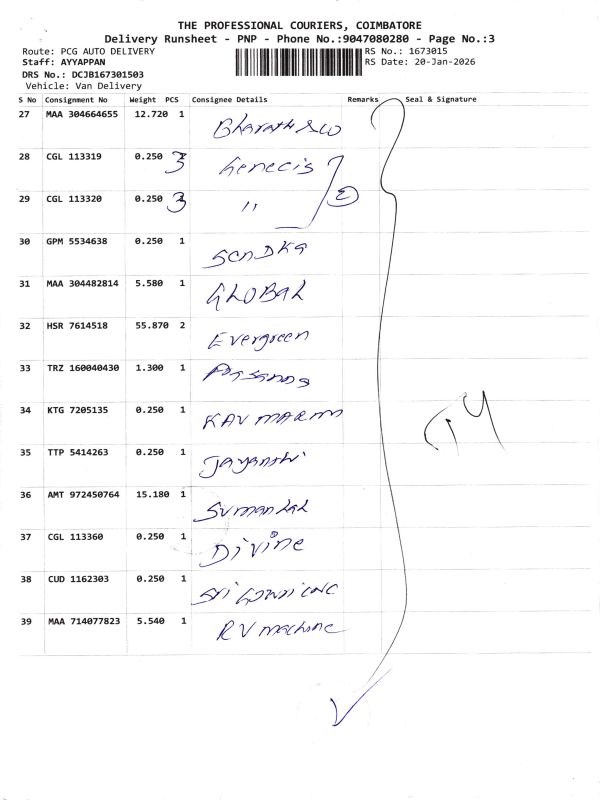 THE PROFESSIONAL COURIERS, COIMBATORE
Delivery Runsheet - PNP - Phone No.:9047080280 - Page No.:3
Route: PCG AUTO DELIVERY RS No.: 1673015
Staff: AYYAPPAN RS Date: 20-Jan-2026
DRS No.: DCJB167301503
Vehicle: Van Delivery
S No Consignment No Weight PCS Consignee Details Remarks Seal & Signature
27 MAA 304664655 12.720 1 Bharath
28 CGL 113319 0.250 3 Genecis 2
29 CGL 113320 0.250 3 "
30 GPM 5534638 0.250 1
31 MAA 304482814 5.580 1 GLOBAL
32 HSR 7614518 55.870 2 Evergreen
33 TRZ 160040430 1.300 1
34 KTG 7205135 0.250 1
35 TTP 5414263 0.250 1
36 AMT 972450764 15.180 1 Sumanlal
37 CGL 113360 0.250 1 Divine
38 CUD 1162303 0.250 1 Sri
39 MAA 714077823 5.540 1 RV machine